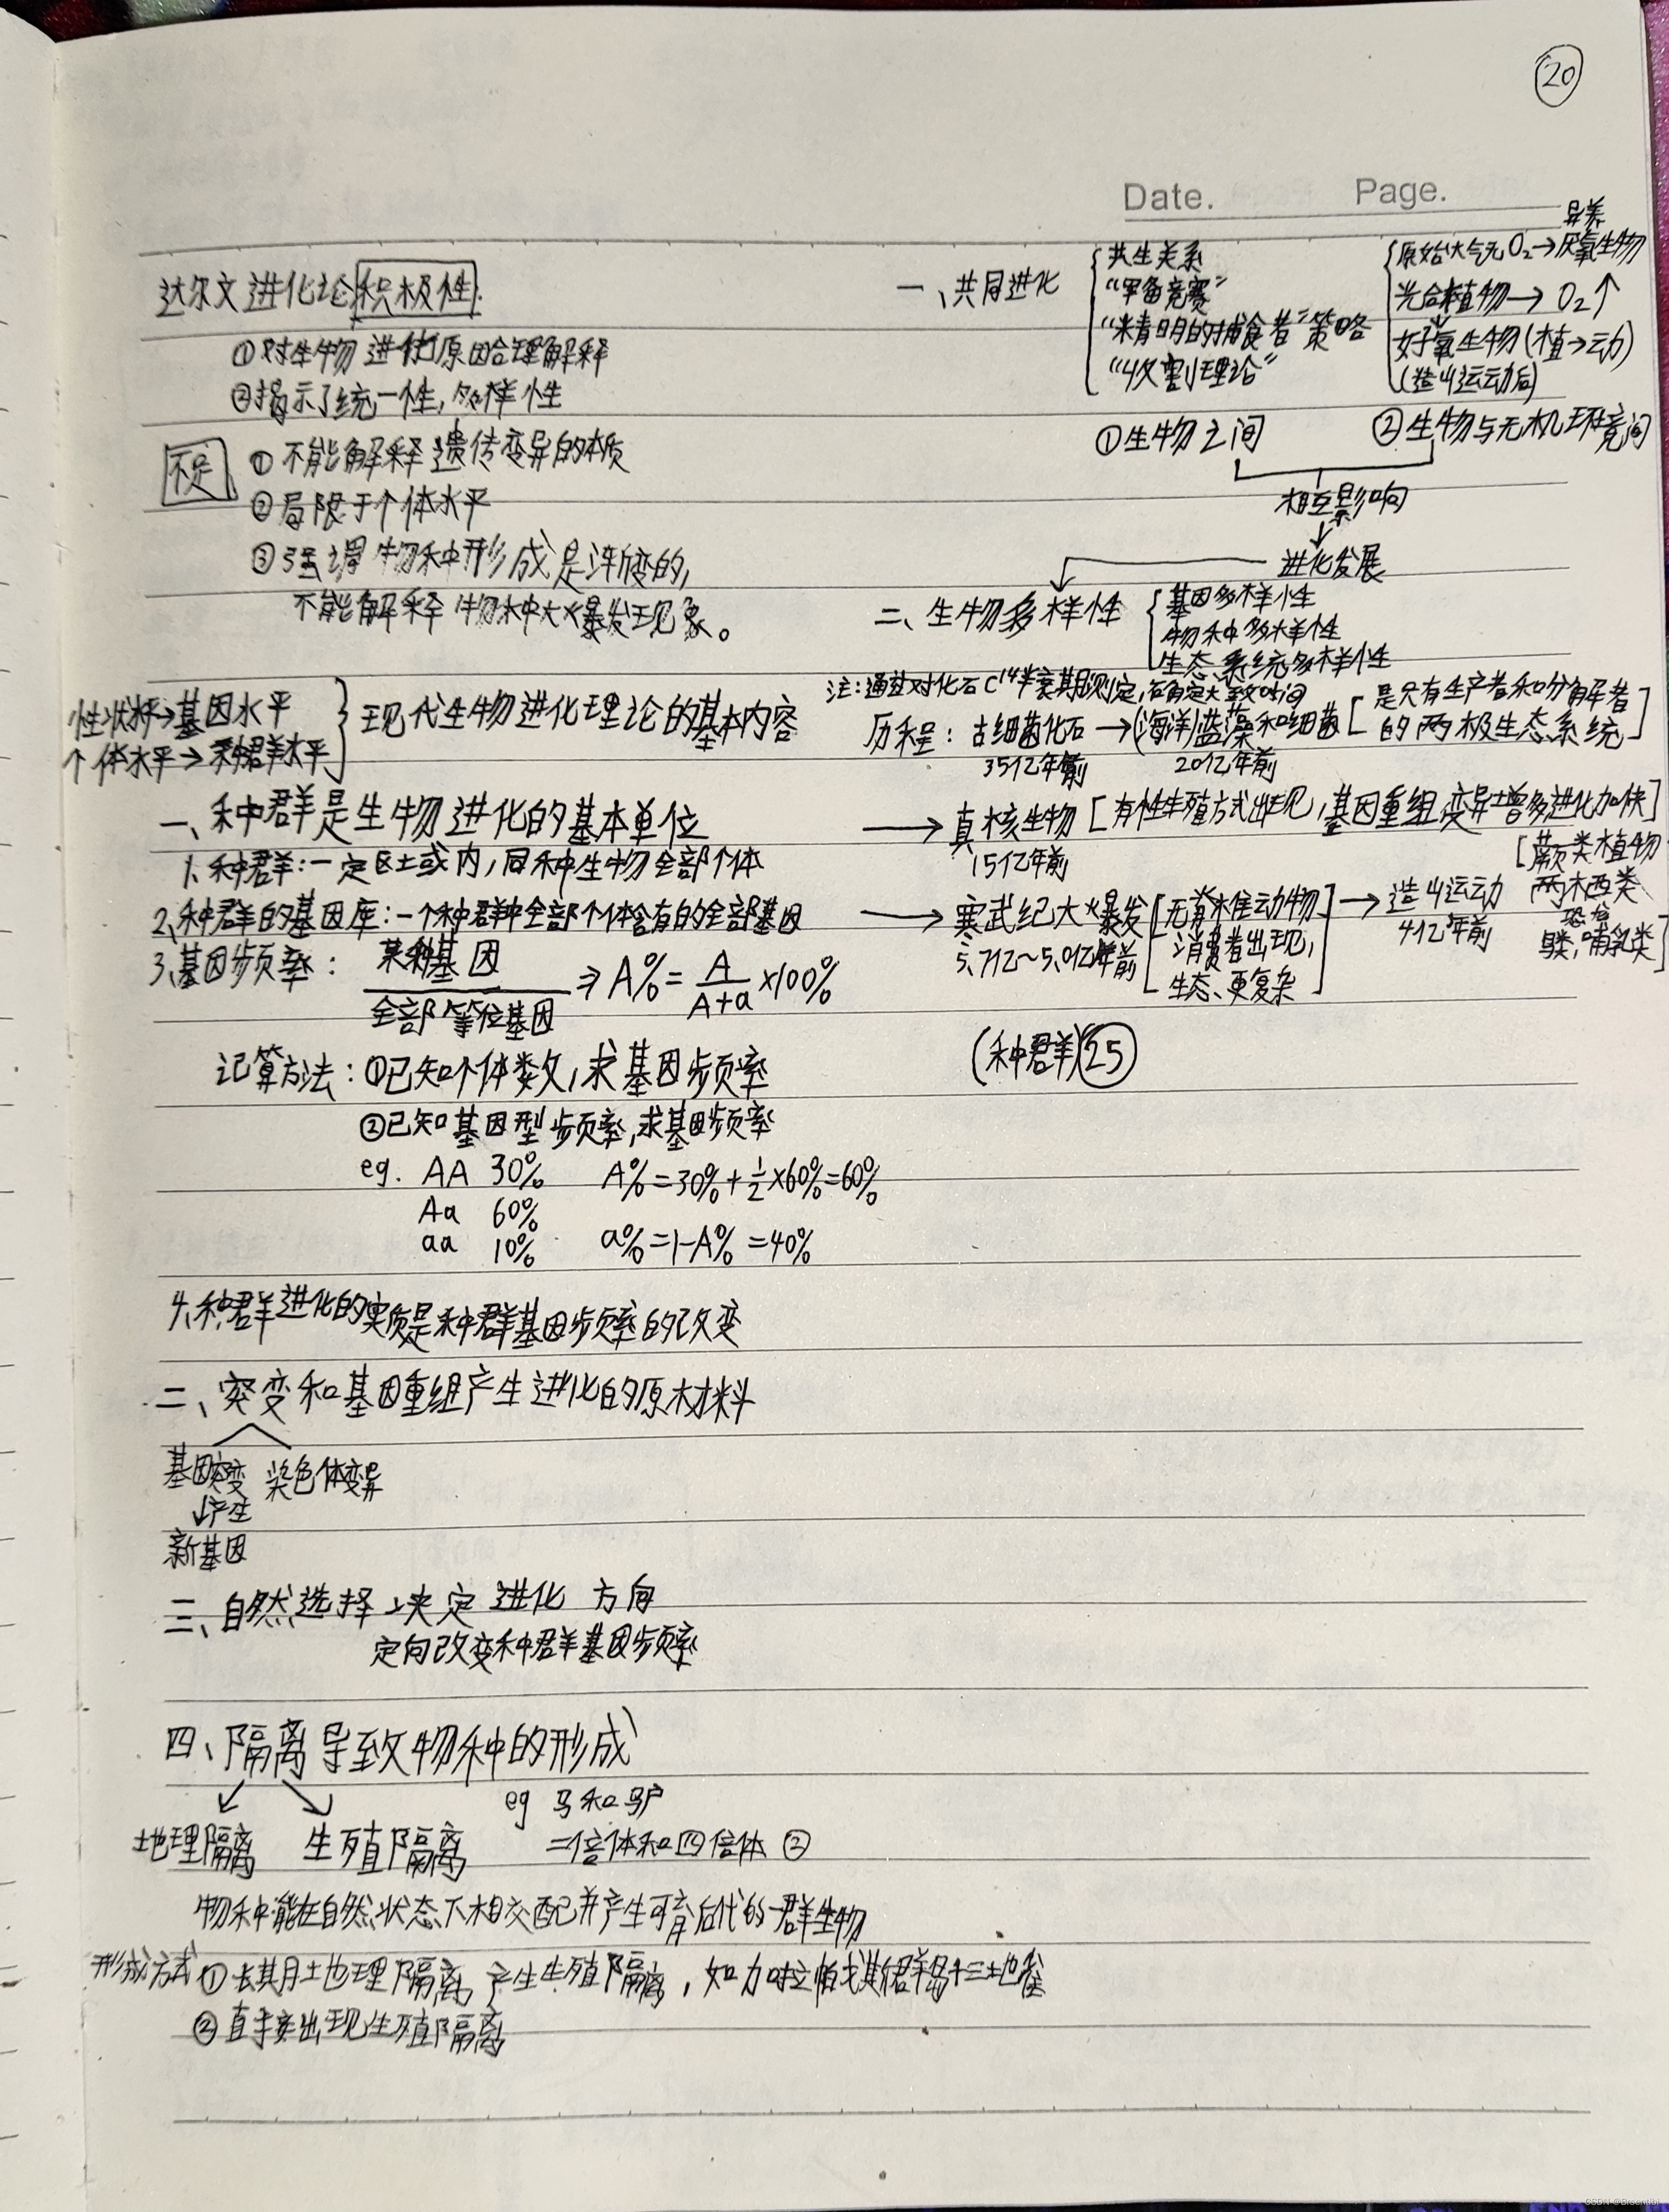 20
Date. Page.
达尔文进化论积极性
①对生物进化原因合理解释
②揭示了统一性，多样性
不足
①不能解释遗传变异的本质
②局限于个体水平
③强调物种形成是渐变的，
不能解释物种大爆发现象。
性状水平→基因水平
个体水平→种群水平
现代生物进化理论的基本内容
一、种群是生物进化的基本单位
1、种群：一定区域内，同种生物全部个体
2、种群的基因库：一个种群中全部个体含有的全部基因
3、基因频率：某种基因/全部等位基因 ⇒ A%=A/(A+a)×100%
记算方法：①已知个体数，求基因频率
②已知基因型频率，求基因频率
eg. AA 30% A%=30%+½×60%=60%
Aa 60%
aa 10% a%=1-A%=40%
4、种群进化的实质是种群基因频率的改变
二、突变和基因重组产生进化的原材料
基因突变 染色体变异
↓产生
新基因
三、自然选择决定进化方向
定向改变种群基因频率
四、隔离导致物种的形成
eg 马和驴
地理隔离 生殖隔离 二倍体和四倍体②
物种能在自然状态下相交配并产生可育后代的一群生物
形成方式①长期地理隔离产生生殖隔离，如加拉帕戈斯群岛十三地雀
②直接出现生殖隔离
一、共同进化
共生关系
“军备竞赛”
“精明的捕食者”策略
“收割理论”
①生物之间
异养
原始大气无O₂→厌氧生物
光合植物→O₂↑
好氧生物(植→动)
(造山运动后)
②生物与无机环境间
相互影响
↓
进化发展
二、生物多样性
基因多样性
物种多样性
生态系统多样性
注：通过对化石C¹⁴半衰期测定，石角定大致时间
历程：古细菌化石→(海洋)蓝藻和细菌[是只有生产者和分解者的两极生态系统]
35亿年前 20亿年前
→真核生物[有性生殖方式出现，基因重组变异增多进化加快]
15亿年前
→寒武纪大爆发[无脊椎动物 消费者出现，生态更复杂]→造山运动[蕨类植物
5.7亿~5.0亿年前 4亿年前 两栖类
恐龙
鸟类，哺乳类]
(种群)25